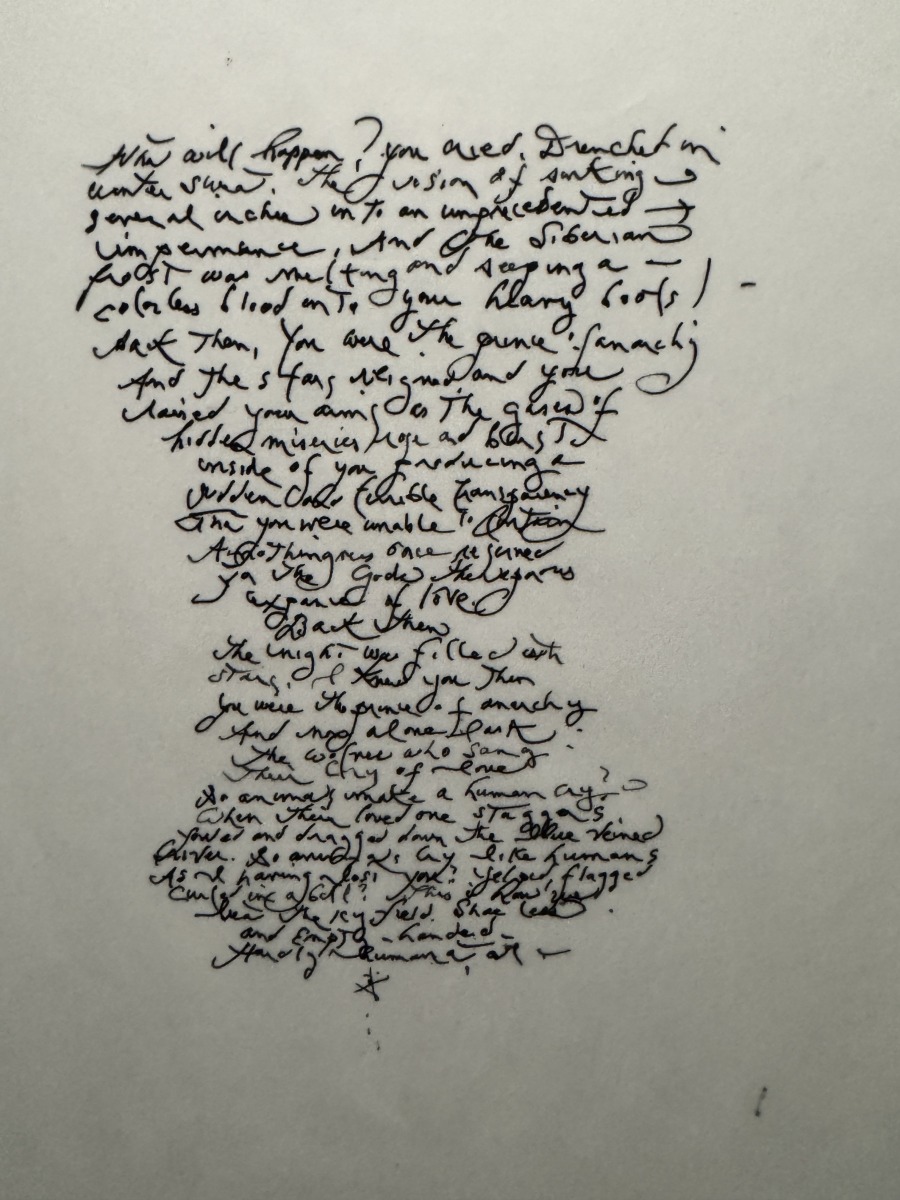 will happen? you cried. Drenched in
winter sweat. The vision of sinking
several inches into an unprecedented
impermance, And the Siberian
frost was melting and seeping a
colorless blood into your heavy boots)
Back Then, You were the prince of anarchy
And the stars reigned and you
raised your arms as The gases of
hidden miseries rage and burst
inside of you producing a
sudden and terrible transparency
That you were unable To Contain
A nothingness once reserved
for The Gods. The vaporous
expanse of love.
Back Then
The night was filled with
stars. I knew you Then
You were the prince of anarchy
And now alone I bark
The wolves who sang
Their Cry of love
Do animals make a human cry?
When their loved one staggers
fouled and dragged down the Blue veined
River. Do animals Cry like humans
As I having lost you? Yelped, flagged
Curled in a ball? This is how we
bear The icy field. Shoe less
and Empty-handed-
Hardly human at